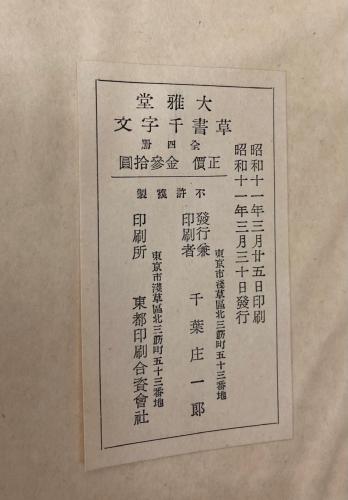 大雅堂
草書千字文
全四册
正價 金參拾圓
不許複製
昭和十一年三月廿五日印刷
昭和十一年三月三十日發行
東京市淺草區北三筋町五十三番地
發行兼印刷者 千葉庄一郎
東京市淺草區北三筋町五十三番地
印刷所 東都印刷合資會社